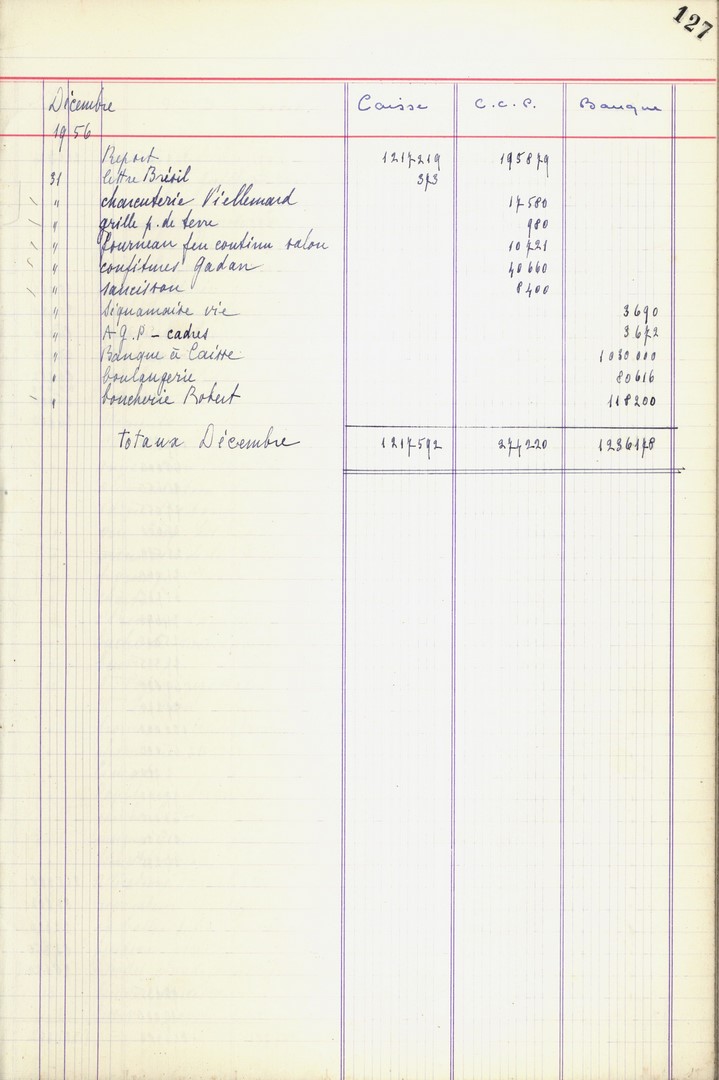 127
Décembre 1956 Caisse C.C.P. Banque
Report 1217219 195879
31 lettre Brésil 373
" charcuterie Viellemard 17580
" grille p. de terre 980
" fourneau feu continu salon 10721
" confitures Gadan 40660
" saucisson 8400
" vie 3690
" A.G.P - cadres 3672
" Banque à Caisse 1030000
" boulangerie 80616
" boucherie Robert 118200
totaux Décembre 1217592 274220 1236178